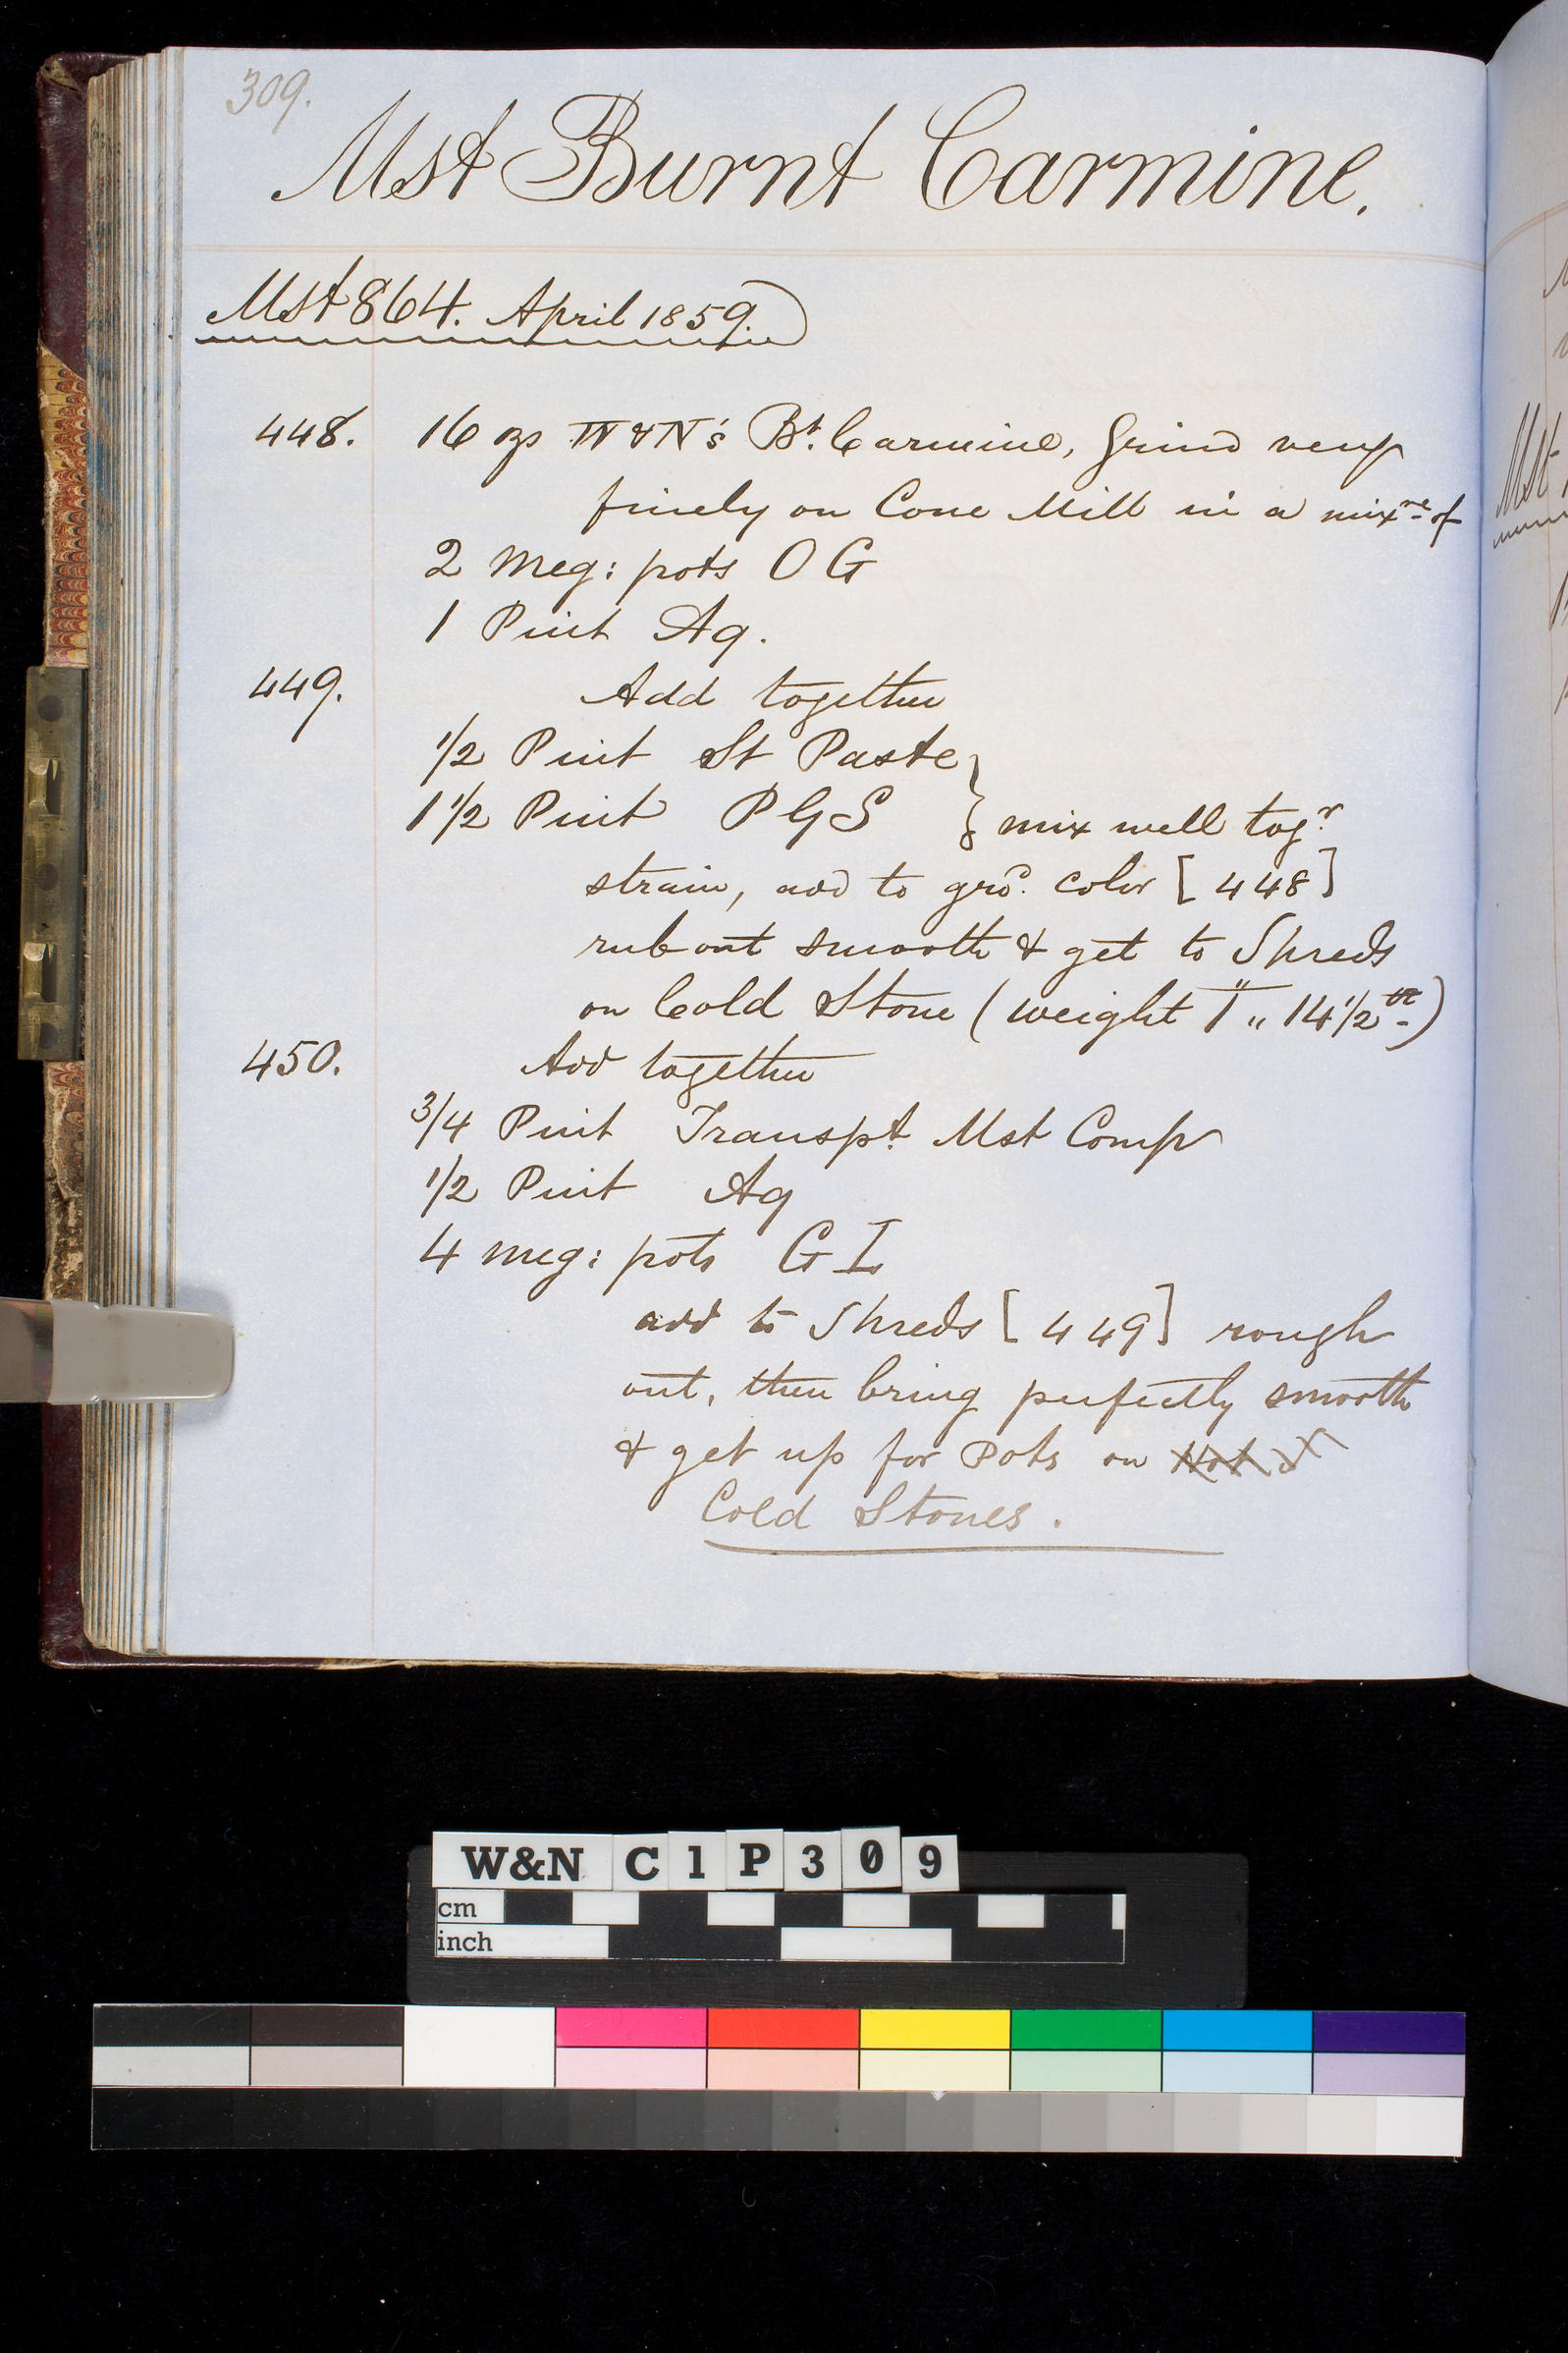 309.
Mst Burnt Carmine.
Mst 864. April 1859.
448. 16 ozs W&N's Bt. Carmine, Grind very
finely on Cone Mill in a mixre of
2 Meg: pots O G
1 Pint Aq.
449. Add together
1/2 Pint St Paste
1 1/2 Pint P G S } mix well togr.
strain, add to grd. color [448]
rub out smooth & get to Shreds
on Cold Stone (weight 1 " 14 1/2
450. Add together
3/4 Pint Transpt Mst Comp
1/2 Pint Aq
4 meg: pots G I
add to Shreds [449] rough
out, then bring perfectly smooth
& get up for Pots on Hot &
Cold Stones.
W&N C1P309
cm
inch